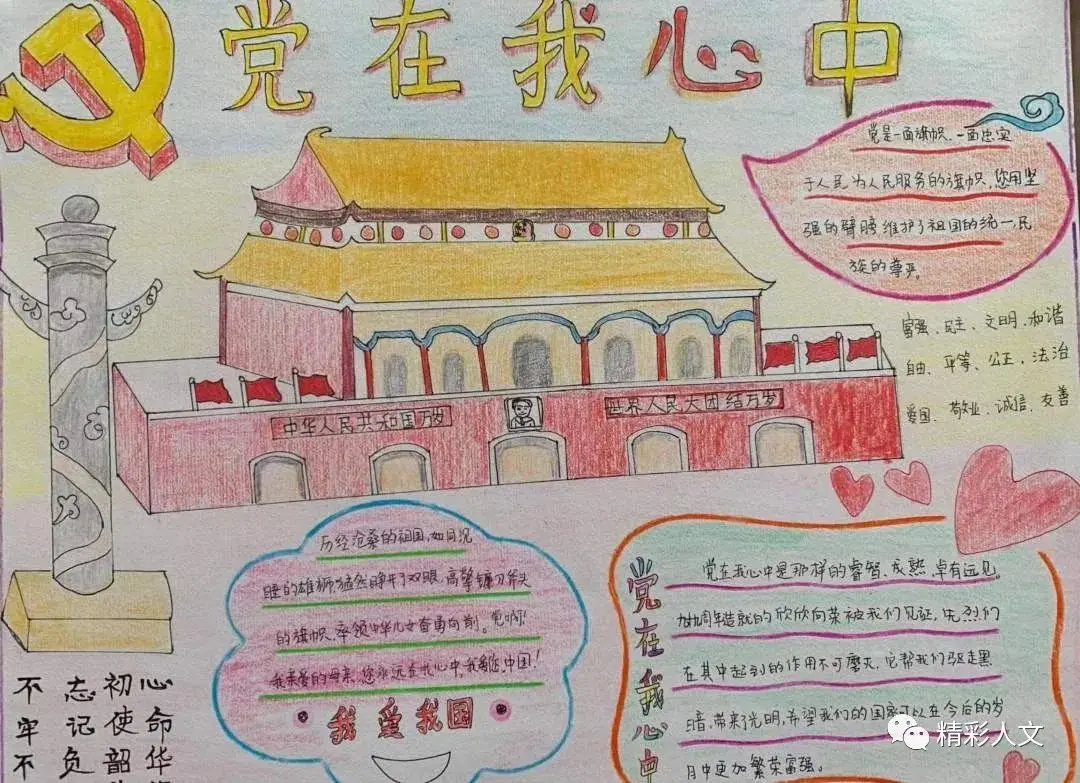 党在我心中
党是一面旗帜，一面忠实
于人民，为人民服务的旗帜，您用坚
强的臂膀维护了祖国的统一，民
族的尊严。
富强、民主、文明、和谐
自由、平等、公正、法治
爱国、敬业、诚信、友善
中华人民共和国万岁
世界人民大团结万岁
历经沧桑的祖国，如同沉
睡的雄狮，猛然睁开了双眼，高擎镰刀斧头
的旗帜，率领中华儿女奋勇向前。党啊！
我亲爱的母亲，您永远在我心中，我爱您，中国！
我爱我国
党在我心中
党在我心中是那样的睿智、成熟、卓有远见。
周年造就的欣欣向荣被我们见证，先烈们
在其中起到的作用不可磨灭，它帮我们驱走黑
暗，带来了光明，希望我们的国家可以在今后的岁
月中更加繁荣富强。
不忘初心
牢记使命
不负韶华
精彩人文